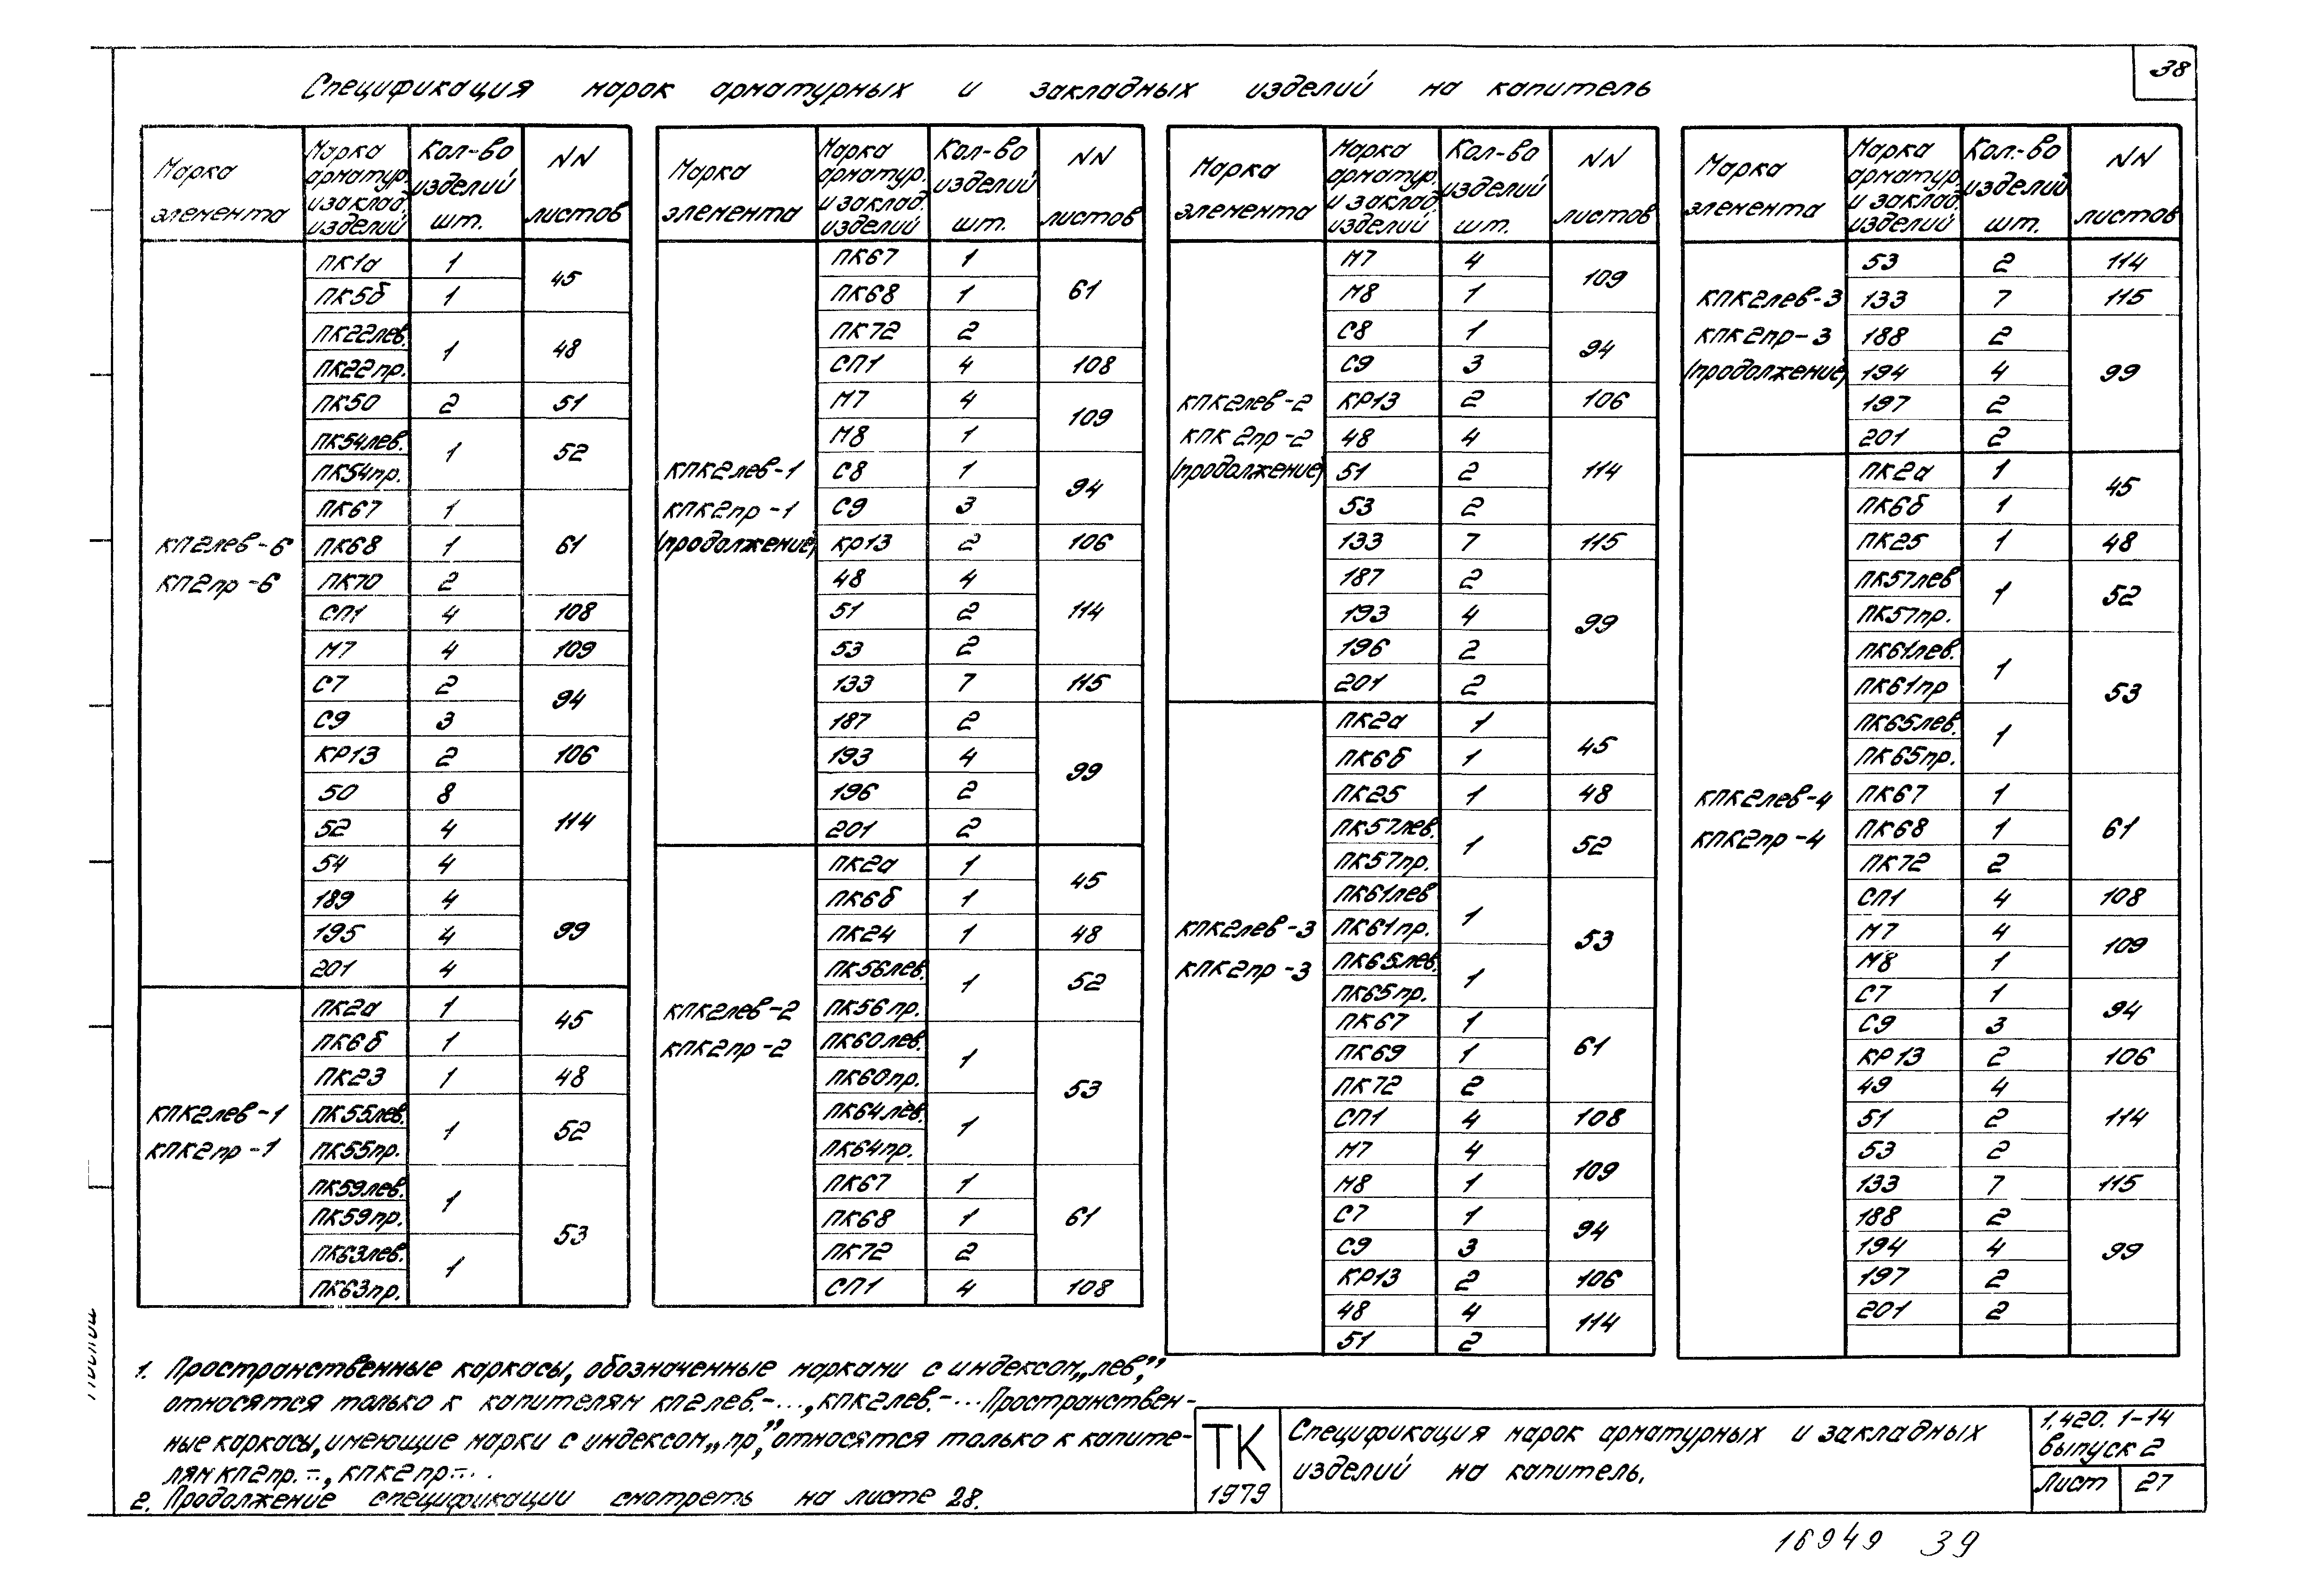 38
Спецификация марок арматурных и закладных изделий на капитель
Марка элемента | Марка арматур. и заклад. изделий | Кол-во изделий шт. | NN листов
КП2лев-6 КП2пр-6
ПК1а 1 45
ПК5б 1
ПК22лев. 1 48
ПК22пр.
ПК50 2 51
ПК54лев. 1 52
ПК54пр.
ПК67 1 61
ПК68 1
ПК70 2
СП1 4 108
М7 4 109
С7 2 94
С9 3
КР13 2 106
50 8 114
52 4
54 4
189 4 99
195 4
201 4
КПК2лев-1 КПК2пр-1
ПК2а 1 45
ПК6б 1
ПК23 1 48
ПК55лев. 1 52
ПК55пр.
ПК59лев. 1 53
ПК59пр.
ПК63лев. 1
ПК63пр.
Марка элемента | Марка арматур. и заклад. изделий | Кол-во изделий шт. | NN листов
КПК2лев-1 КПК2пр-1 (продолжение)
ПК67 1 61
ПК68 1
ПК72 2
СП1 4 108
М7 4 109
М8 1
С8 1 94
С9 3
КР13 2 106
48 4 114
51 2
53 2
133 7 115
187 2 99
193 4
196 2
201 2
КПК2лев-2 КПК2пр-2
ПК2а 1 45
ПК6б 1
ПК24 1 48
ПК56лев. 1 52
ПК56пр.
ПК60лев. 1 53
ПК60пр.
ПК64лев. 1
ПК64пр.
ПК67 1 61
ПК68 1
ПК72 2
СП1 4 108
Марка элемента | Марка арматур. и заклад. изделий | Кол-во изделий шт. | NN листов
КПК2лев-2 КПК2пр-2 (продолжение)
М7 4 109
М8 1
С8 1 94
С9 3
КР13 2 106
48 4 114
51 2
53 2
133 7 115
187 2 99
193 4
196 2
201 2
КПК2лев-3 КПК2пр-3
ПК2а 1 45
ПК6б 1
ПК25 1 48
ПК57лев. 1 52
ПК57пр.
ПК61лев 1 53
ПК61пр.
ПК65лев. 1
ПК65пр.
ПК67 1 61
ПК69 1
ПК72 2
СП1 4 108
М7 4 109
М8 1
С7 1 94
С9 3
КР13 2 106
48 4 114
51 2
Марка элемента | Марка арматур. и заклад. изделий | Кол.-во изделий шт. | NN листов
КПК2лев-3 КПК2пр-3 (продолжение)
53 2 114
133 7 115
188 2 99
194 4
197 2
201 2
КПК2лев-4 КПК2пр-4
ПК2а 1 45
ПК6б 1
ПК25 1 48
ПК57лев 1 52
ПК57пр.
ПК61лев. 1 53
ПК61пр
ПК65лев. 1
ПК65пр.
ПК67 1 61
ПК68 1
ПК72 2
СП1 4 108
М7 4 109
М8 1
С7 1 94
С9 3
КР13 2 106
49 4 114
51 2
53 2
133 7 115
188 2 99
194 4
197 2
201 2
1. Пространственные каркасы, обозначенные марками с индексом „лев”,
относятся только к капителям КП2лев.-..., КПК2лев.-... Пространствен-
ные каркасы, имеющие марки с индексом „пр”, относятся только к капите-
лям КП2пр.-..., КПК2пр-...
2. Продолжение спецификации смотреть на листе 28.
ТК
1979
Спецификация марок арматурных и закладных
изделий на капитель.
1.420.1-14
Выпуск 2
Лист 27
16949 39